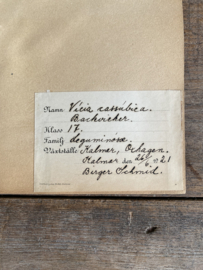 Namn Vicia cassubica.
Backvicker.
Klass 17.
Familj Leguminosæ
Växtställe Kalmar,
Kalmar den 26/6 1921
Birger Schmid.